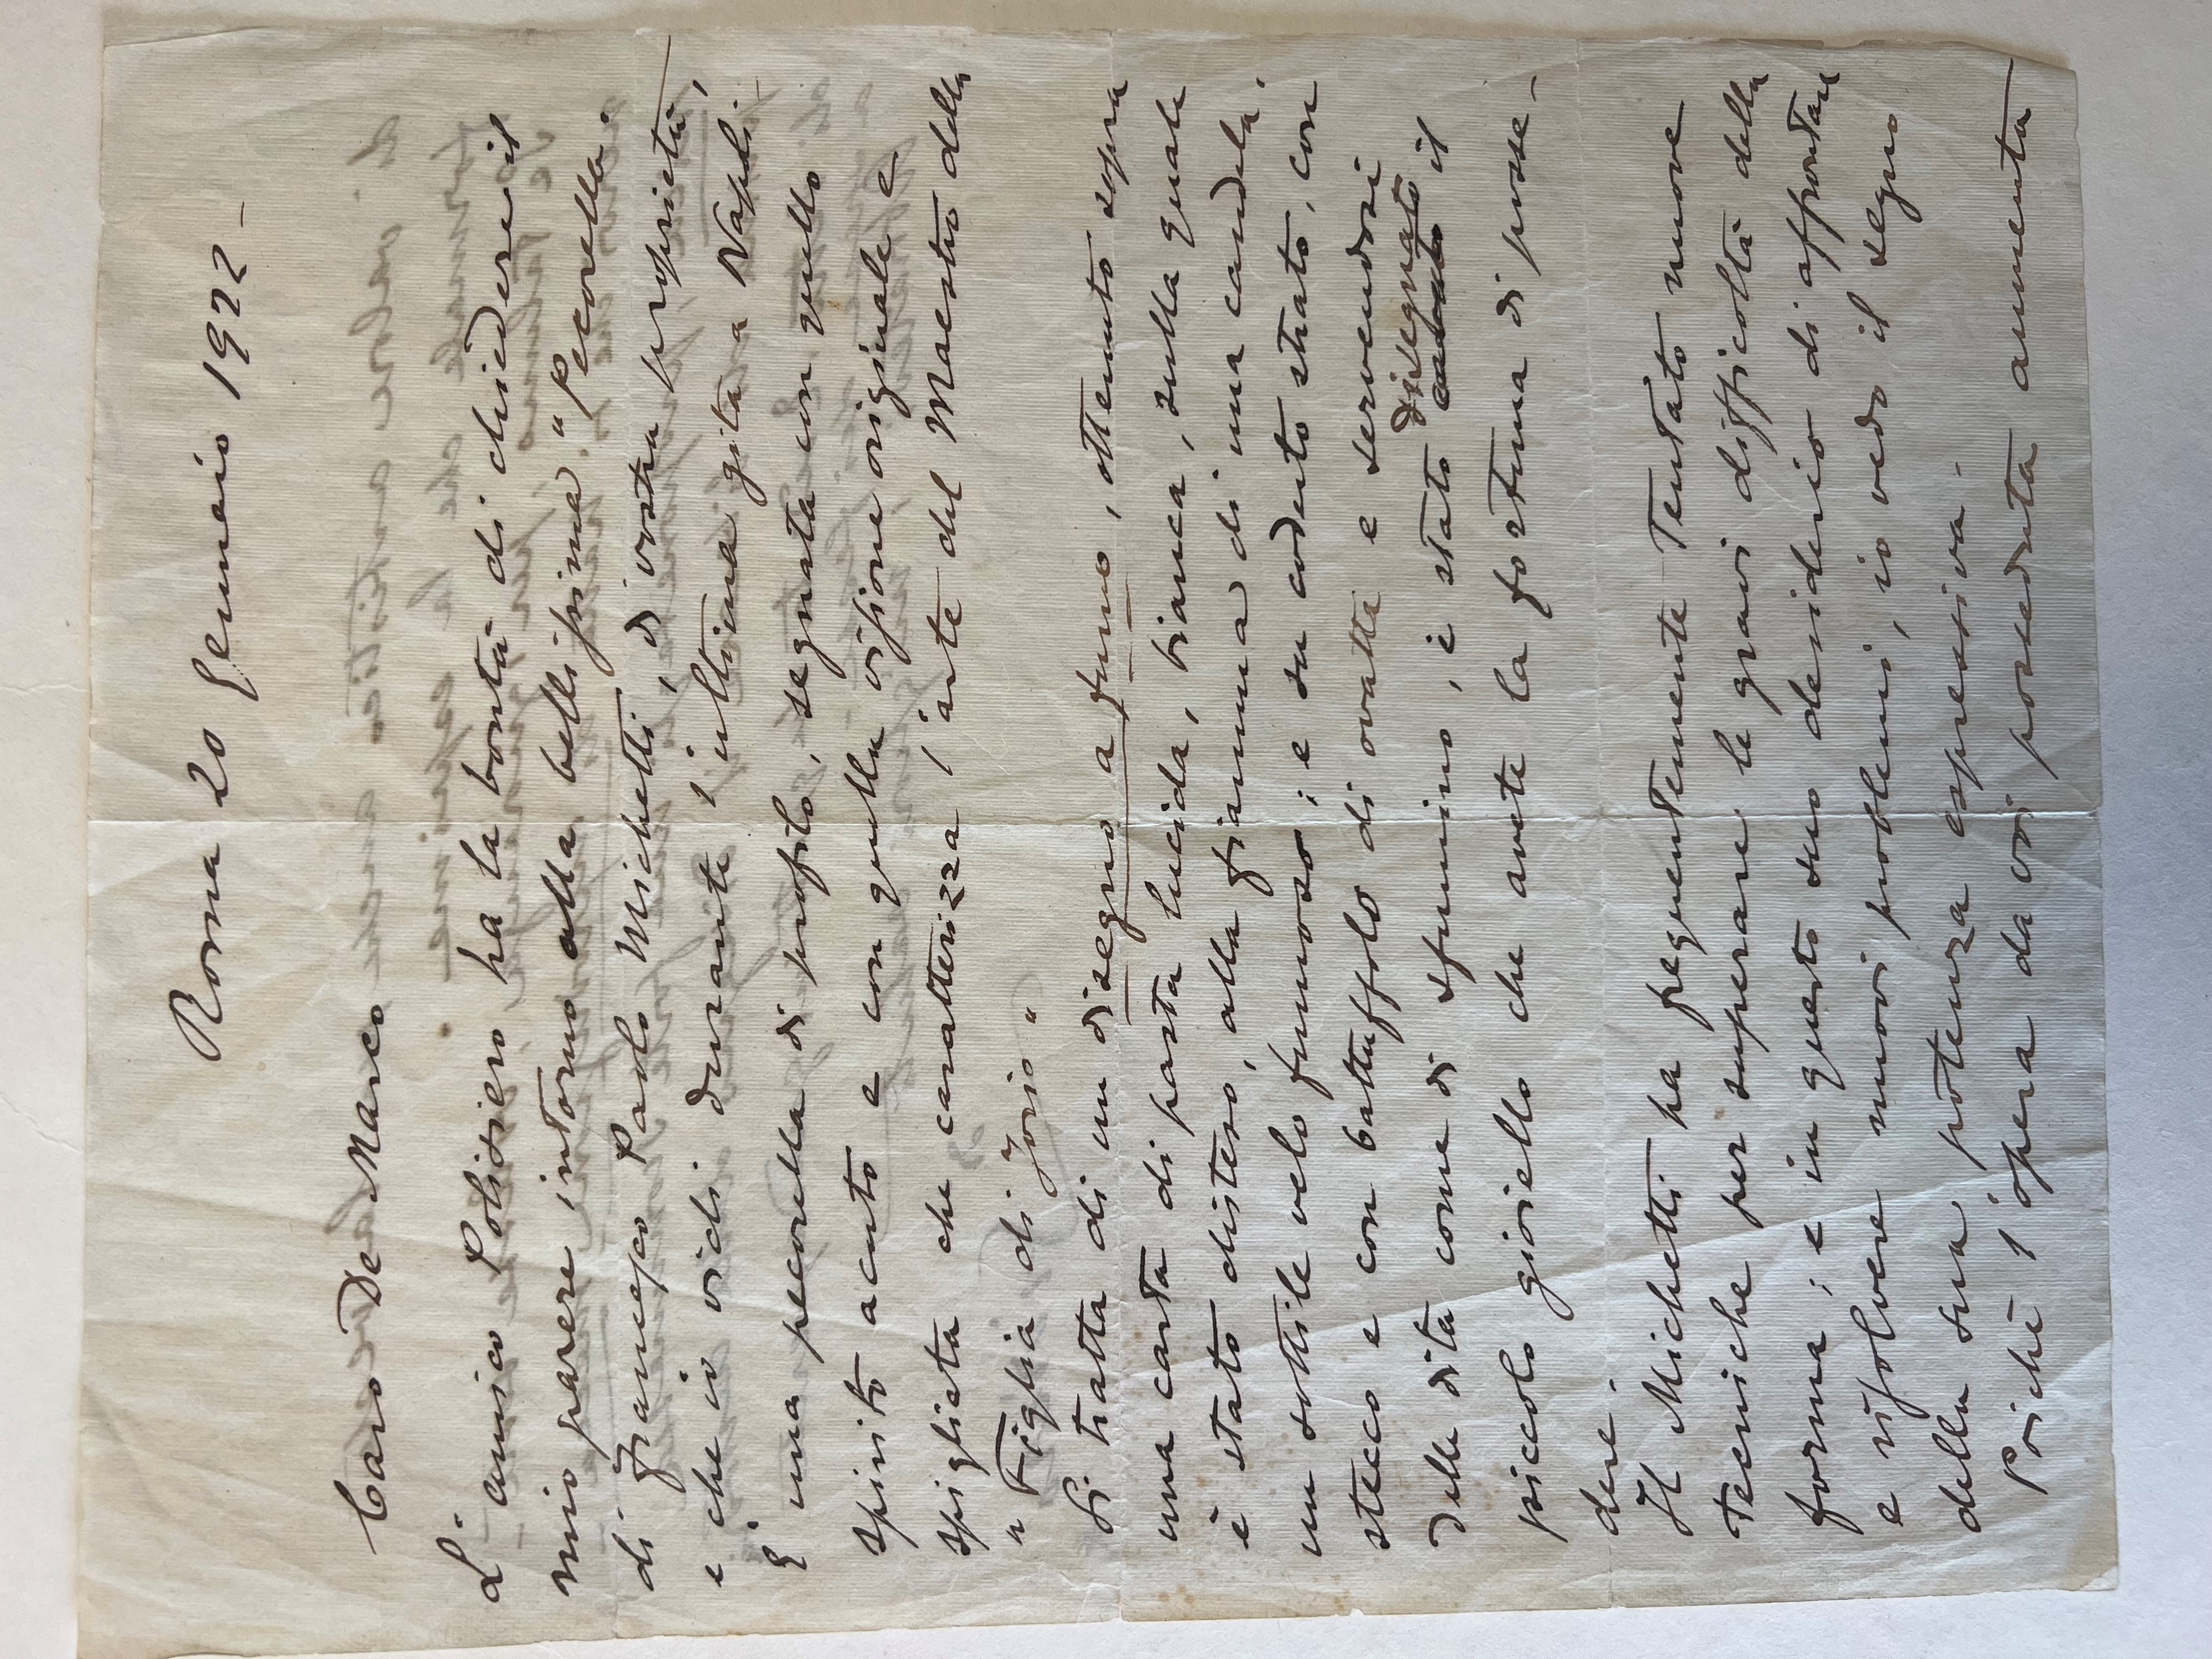 Roma 20 Gennaio 1922 –
Caro De Marco
L'amico Polisiero ha la bontà di chiedere il
mio parere intorno alla bellissima "Pecorella"
di Francesco Paolo Michetti, di vostra proprietà,
e che io vidi durante l'ultima gita a Napoli.–
È una pecorella di profilo, segnata con quello
spirito acuto e con quella visione originale e
spigliata che caratterizza l'arte del Maestro della
"Figlia di Jorio"
Si tratta di un disegno a fumo, ottenuto sopra
una carta di pasta lucida, bianca, sulla quale
è stato disteso, alla fiamma di una candela,
un sottile velo fumoso; e su codesto strato, con
stecco e con batuffolo di ovatta e servendosi
disegnato
delle dita come di sfumino, è stato il
piccolo gioiello che avete la fortuna di posse–
dere.
Il Michetti ha frequentemente tentato nuove
tecniche per superare le gravi difficoltà della
forma; e in questo suo desiderio di affrontare
e risolvere nuovi problemi, io vedo il segno
della sua potenza espressiva.–
Poichè l'opera da voi posseduta aumenta